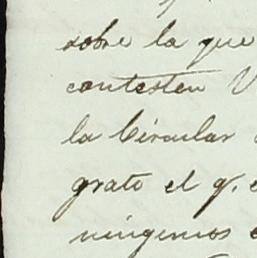 sobre la que
contesten V
la Circular
grato el q.
ningenios